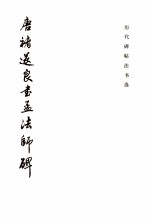 历代碑帖法书选
唐褚遂良书孟法师碑